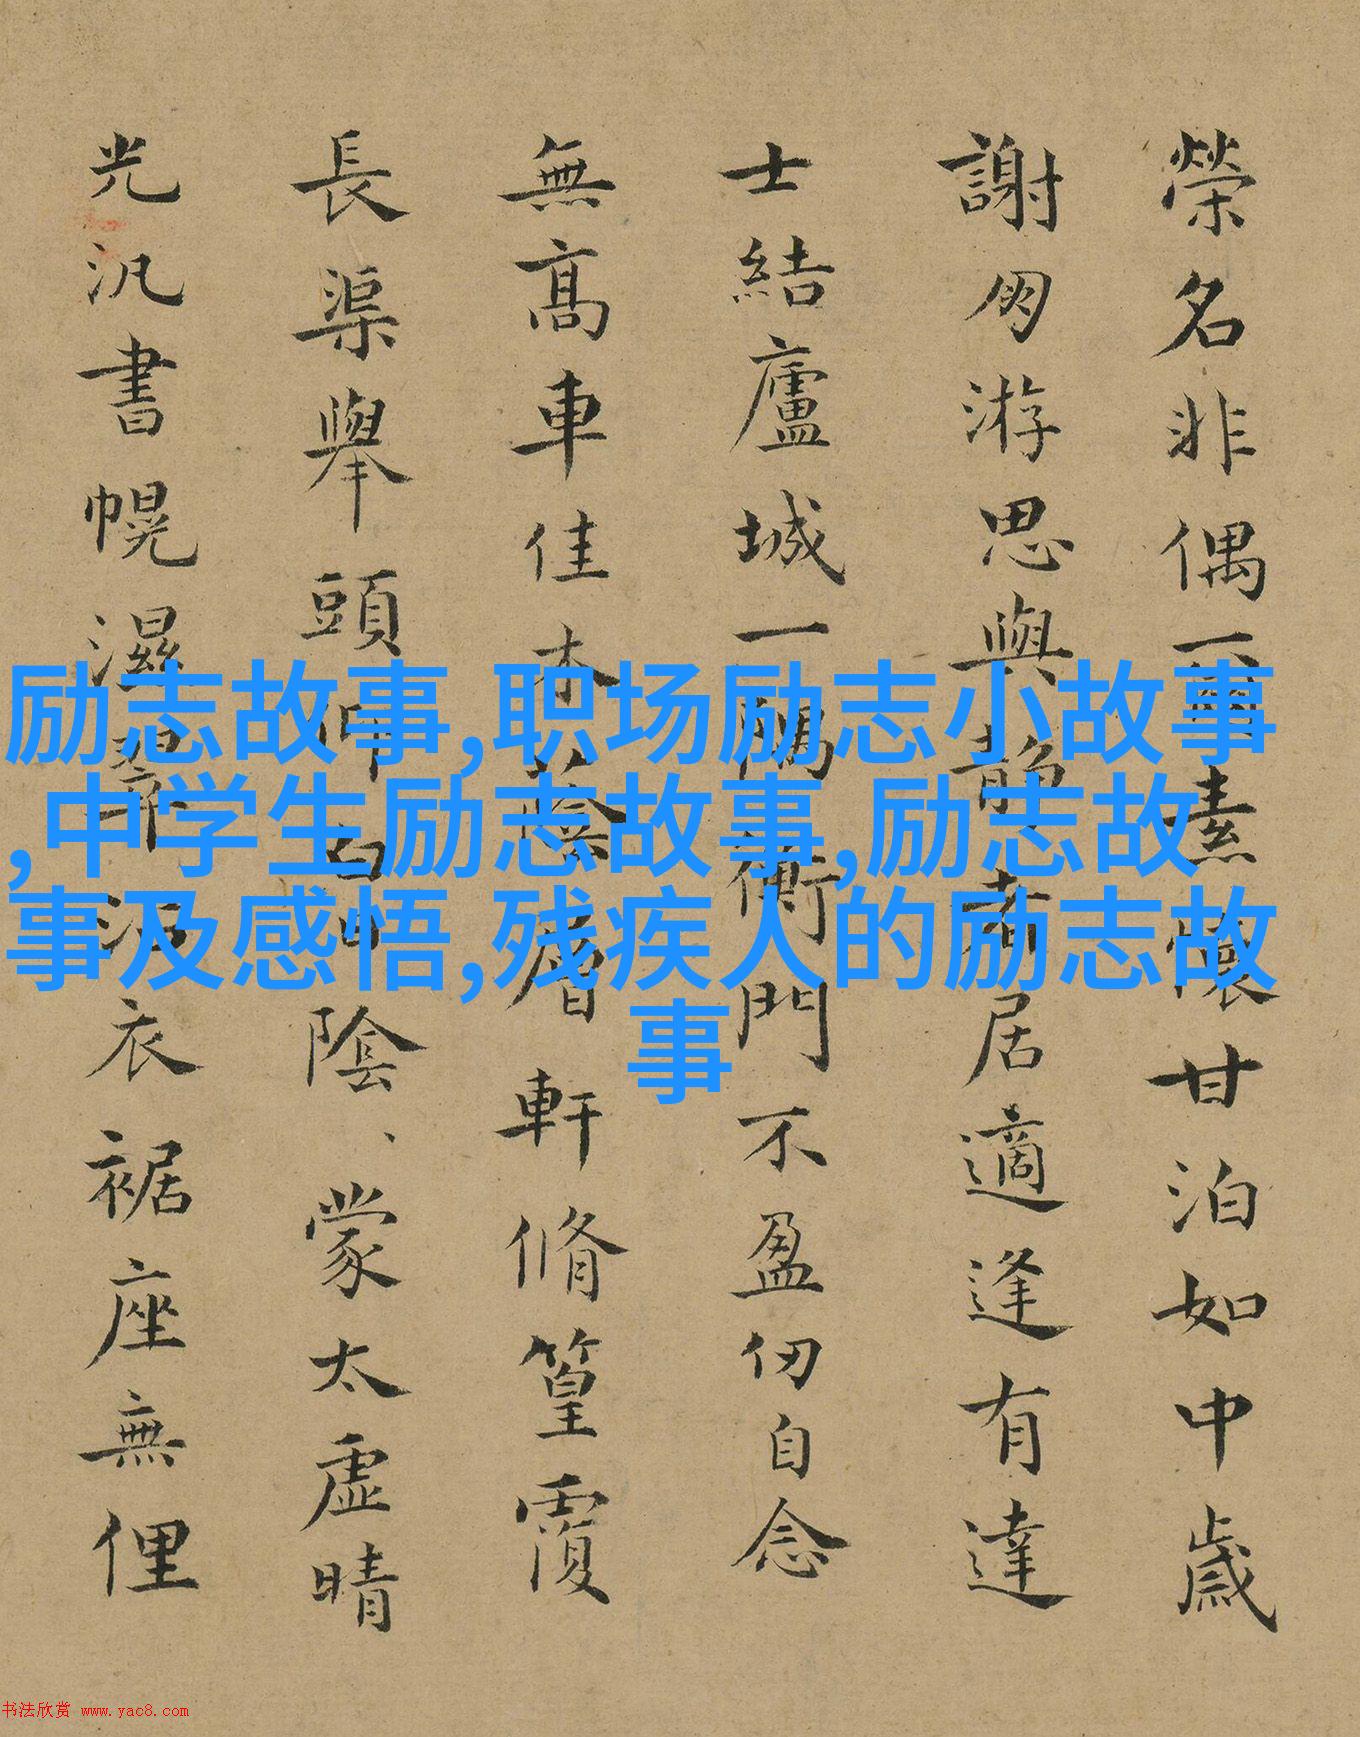 榮名非偶爾素懷甘泊如中歲
謝朋游思與靜者居適逢有達
士結廬城一隅衡門不盈仞自念
無髙車佳木蔭層軒脩篁覆
長渠舉頭仰陰、蒙太虛晴
光汎書幌濕翠衣裾座無俚
励志故事,职场励志小故事
,中学生励志故事,励志故
事及感悟,残疾人的励志故
事
书法欣赏 www.yac8.com